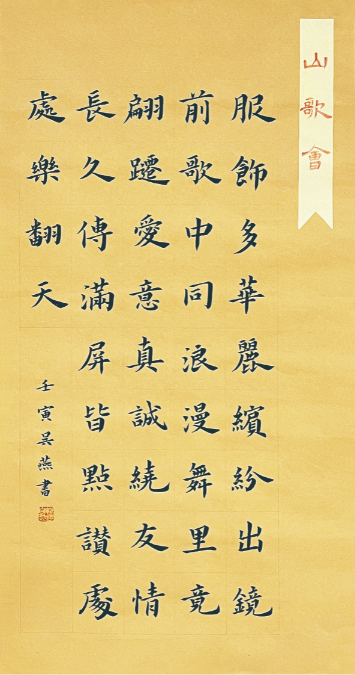 山歌會
服飾多華麗繽紛出鏡
前歌中同浪漫舞里竟
翩躚愛意真誠繞友情
長久傳滿屏皆點讚處
處樂翻天
壬寅吴燕書